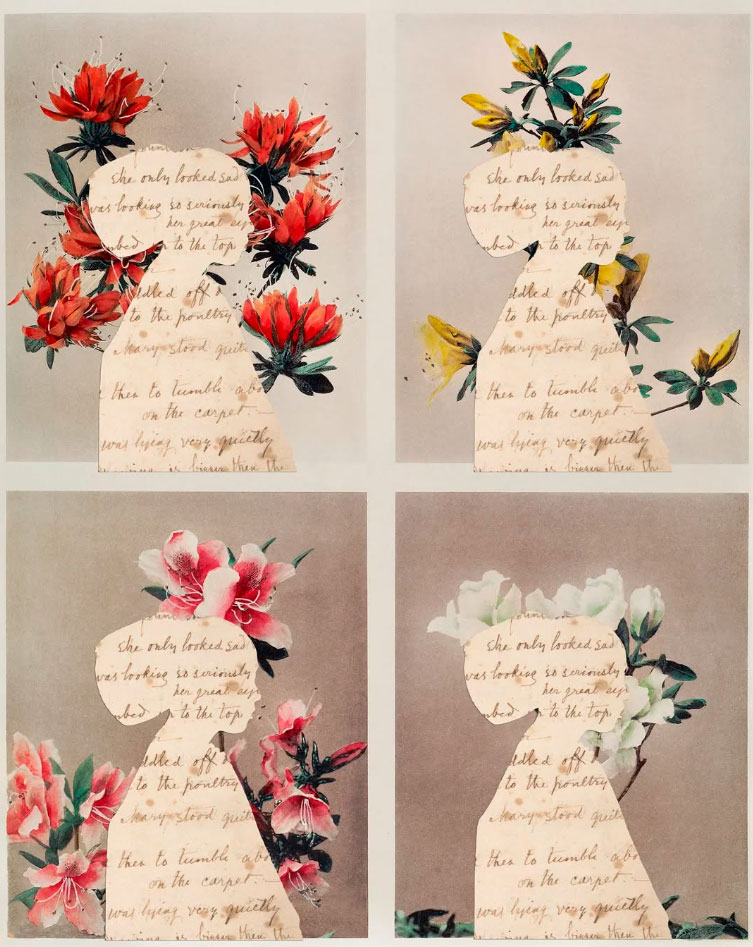 She only looked sad
was looking so seriously
her great
mbed to the top
ddled off
to the poultry
Mary stood quit
then to tumble abo
on the carpet.
was lying very quietly
then the
She only looked sad
was looking so seriously
her great
mbed to the top
ddled off
to the poultry
Mary stood quit
then to tumble abo
on the carpet.
was lying very quietly
then the
She only looked sad
was looking so seriously
her great
mbed to the top
ddled off
to the poultry
Mary stood quit
then to tumble abo
on the carpet.
was lying very quietly
then the
She only looked sad
was looking so seriously
her great
mbed to the top
ddled off
to the poultry
Mary stood quit
then to tumble abo
on the carpet.
was lying very quietly
then the